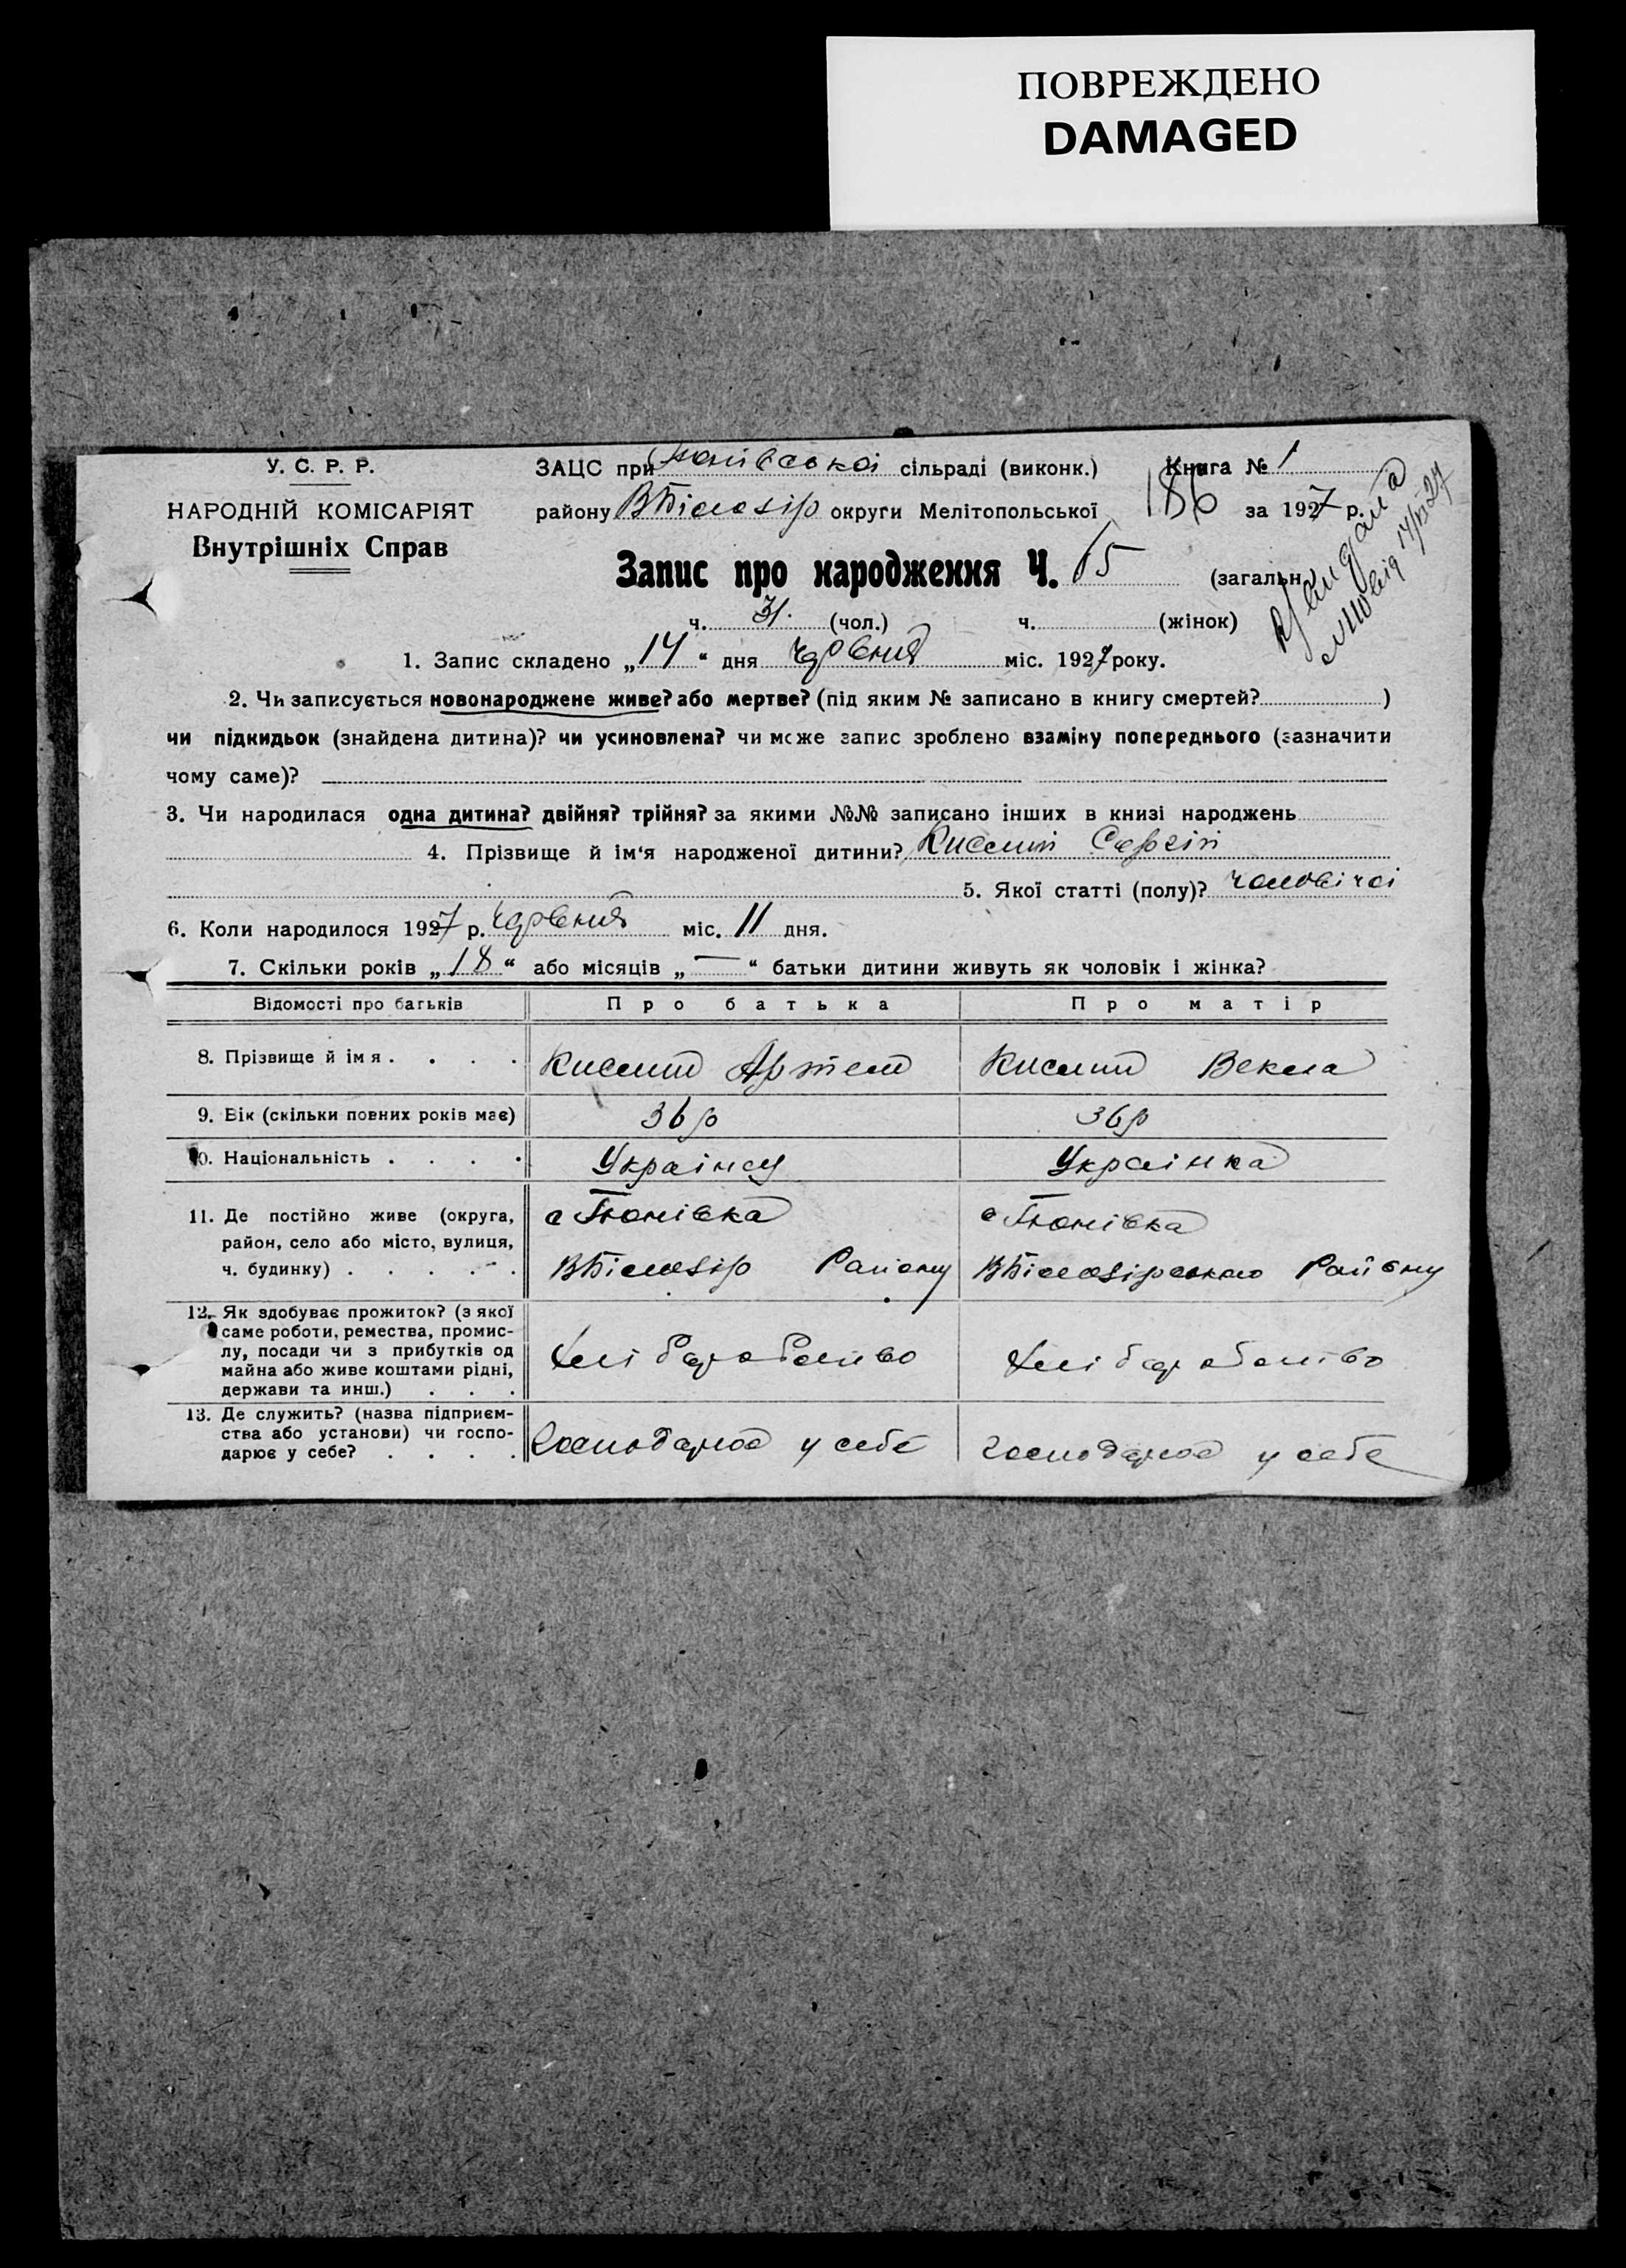 ПОВРЕЖДЕНО
DAMAGED
У. С. Р. Р.
НАРОДНІЙ КОМІСАРІЯТ
Внутрішніх Справ
ЗАЦС при сільраді (виконк.) Книга № 1
району ВБілозір округи Мелітопольської 186 за 1927 р.
Запис про народження Ч. 65 (загальн.
ч. 31. (чол.) ч. (жінок)
1. Запис складено „14“ дня червня міс. 1927 року.
2. Чи записується новонароджене живе? або мертве? (під яким № записано в книгу смертей? )
чи підкидьок (знайдена дитина)? чи усиновлена? чи може запис зроблено взаміну попереднього (зазначити
чому саме)?
3. Чи народилася одна дитина? двійня? трійня? за якими №№ записано інших в книзі народжень
4. Прізвище й ім'я народженої дитини? Кислий Сергій
5. Якої статті (полу)? чоловічої
6. Коли народилося 1927 р. червня міс. 11 дня.
7. Скільки років „18“ або місяців „—“ батьки дитини живуть як чоловік і жінка?
Відомості про батьків Про батька Про матір
8. Прізвище й імя . . . . Артем Векла
9. Вік (скільки повних років має) 36 р 36 р
10. Національність . . . . Українец Українка
11. Де постійно живе (округа,
район, село або місто, вулиця,
ч. будинку) . . . . .
с Тюнівка с Тюнівка
ВБілозір Району ВБілозірського Району
12. Як здобуває прожиток? (з якої
саме роботи, ремества, промис-
лу, посади чи з прибутків од
майна або живе коштами рідні,
держави та инш.) . . .
Хліборобство Хліборобство
13. Де служить? (назва підприєм-
ства або установи) чи госпо-
дарює у себе? . . . .
господарює у себе господарює у себе